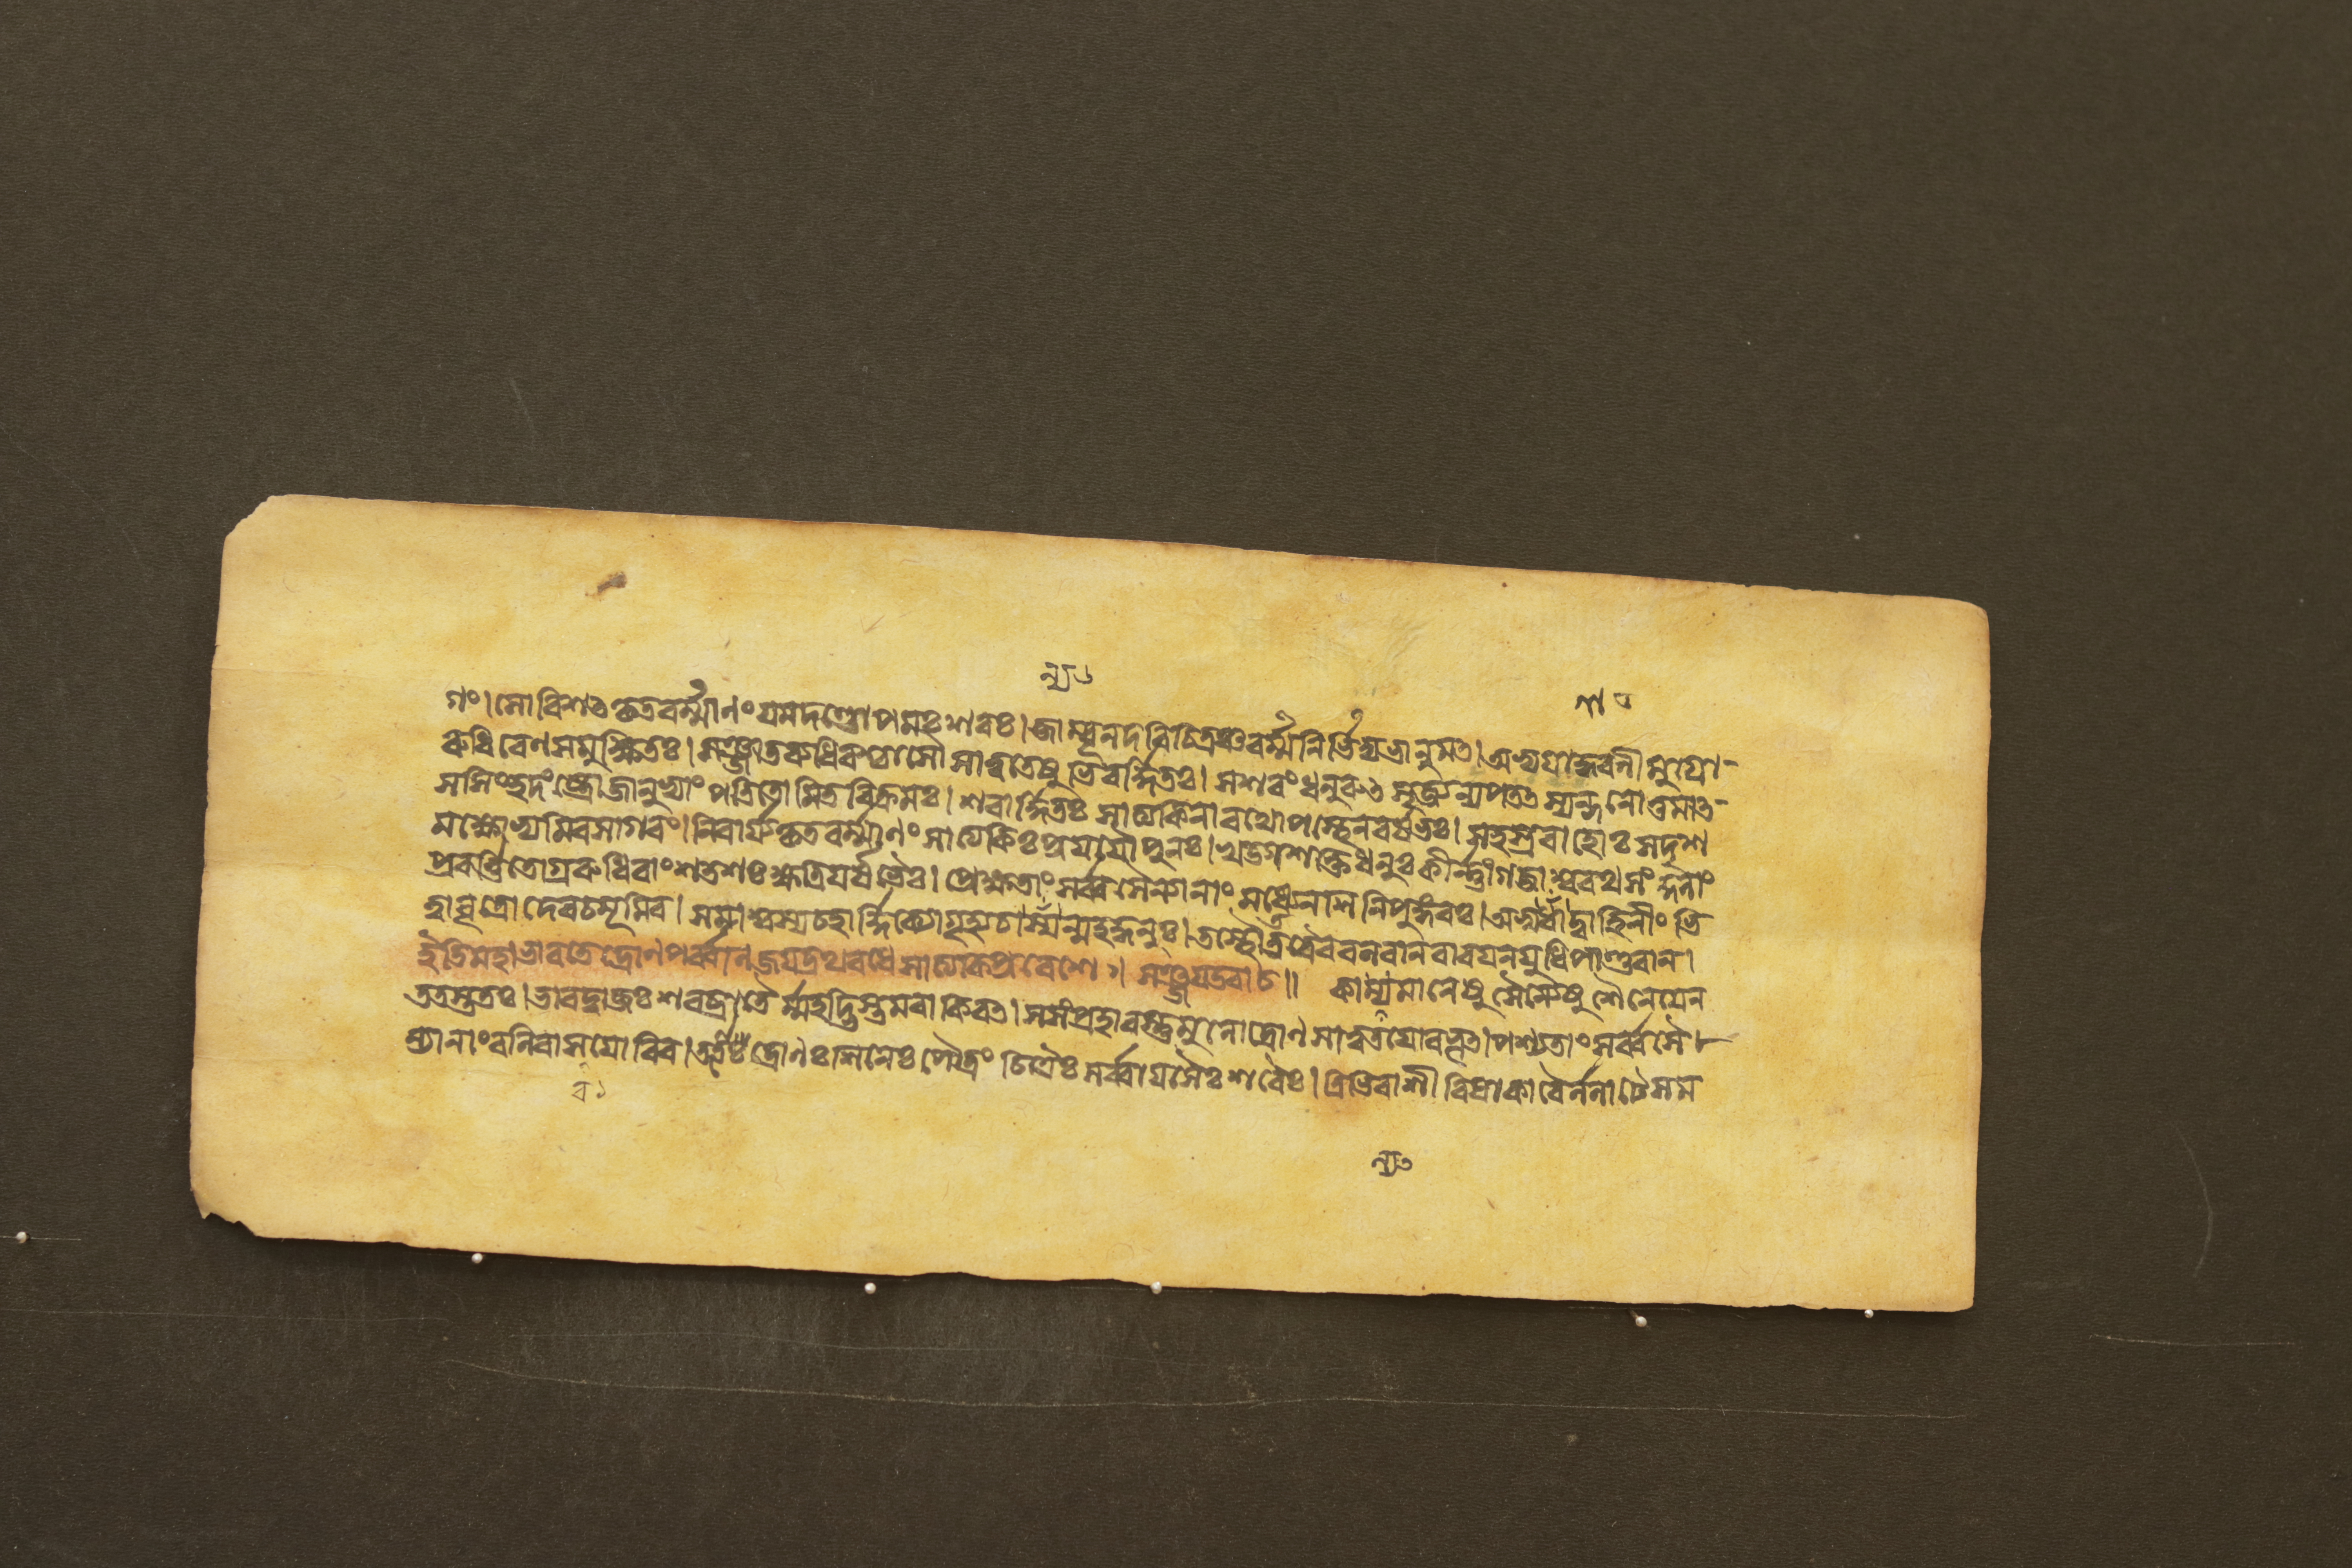 গঃ।সোবিশৎকৃতবর্ম্মাণং যমদণ্ডোপমঃ শরঃ।জাম্বূনদবিচিত্রঞ্চবর্ম্মনির্ভিদ্যভানুমৎ।অভ্যগাদ্ধরণীমুগ্রো-
রুধিরেণসমুক্ষিতঃ।সঞ্জাতরুধিরশ্চাসৌসাত্বতেষুভিরর্দ্দিতঃ।সশরং ধনুরুৎসৃজ্যন্যপতৎস্যন্দনোত্তমাৎ-
সসিংহদংষ্ট্রোজানুভ্যাং পতিতোমিতবিক্রমঃ।শরার্দ্দিতঃ সাত্যকিনারথোপস্থেনরর্ষভঃ।সহস্রবাহোঃ সদৃশ
মক্ষোভ্যমিবসাগরং।নিবার্য্যকৃতবর্ম্মাণং সাত্যকিঃ প্রযযৌপুনঃ।খড্গশক্তিধনুঃকীর্ণ্ণাংগজাশ্বরথসং
প্রবর্ত্তিতোগ্ররুধিরাং শতশঃক্ষত্রিয়র্ষভৈঃ।প্রেক্ষতাং সর্ব্বসৈন্যানাং মধ্যেনশিনিপুঙ্গবঃ।অভ্যগাদ্বাহিনীং ভি
ত্বাবৃত্রোদেবচমূমিব।সমাশ্বস্যচহার্দ্দিক্যোগৃহ্যচান্যন্মহদ্ধনুঃ।তস্থৌতত্রৈববলবানবারয়নযুধিপাণ্ডবান।
ইতিমহাভারতেদ্রোণপর্ব্বনিজয়দ্রথবধেসাত্যকিপ্রবেশেঃ।সঞ্জয়উবাচ॥ কাল্যমানেষুসৈন্যেষুশৈনেয়েন
ততস্ততঃ।ভারদ্বাজঃ শরব্রাতৈর্ম্মহদ্ভিস্তমবাকিরৎ।সসংপ্রহারস্তুমুলোদ্রোণসাত্বতয়োরভূৎ।পশ্যতাং সর্ব্বসৈ
ন্যানাং বলিবাসবয়োরিব।ততঃ দ্রোণঃ শিনেঃ পৌত্রং চিত্রৈঃ সর্ব্বায়সৈঃ শরৈঃ।ত্রিভিরাশীবিষাকারৈর্ললাটেসম